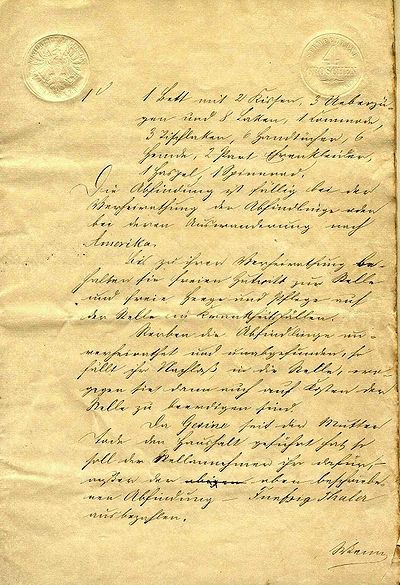 1 Bett mit 2 Kissen, 3 Ueberzü-
gen und 8 Laken, 1 Commode,
3 Tischlaken, 6 Handtücher, 6
Hemde, 2 Paar Ehrenkleider,
1 Haspel, 1 Spinnrad.
Die Abfindung ist fällig bei der
Verheirathung der Abfindlinge oder
bei deren Auswanderung nach
Amerika.
Bis zu ihrer Verheirathung be-
halten sie freien Zutritt zur Stelle
und freie Hege und Pflege auf
der Stelle in Krankheitsfällen.
Sterben die Abfindlinge un-
verheirathet und unabgefunden, so
fällt ihr Nachlaß in die Stelle, wo-
gegen sie dann auch auf Kosten der
Stelle zu beerdigen sind.
Da Gesine seit der Mutter
Tode den Haushalt geführt hat, so
soll der Stellannehmer ihr dafür,
außer der oben beschriebe-
nen Abfindung – Funfzig Thaler
auszahlen.
Wenn